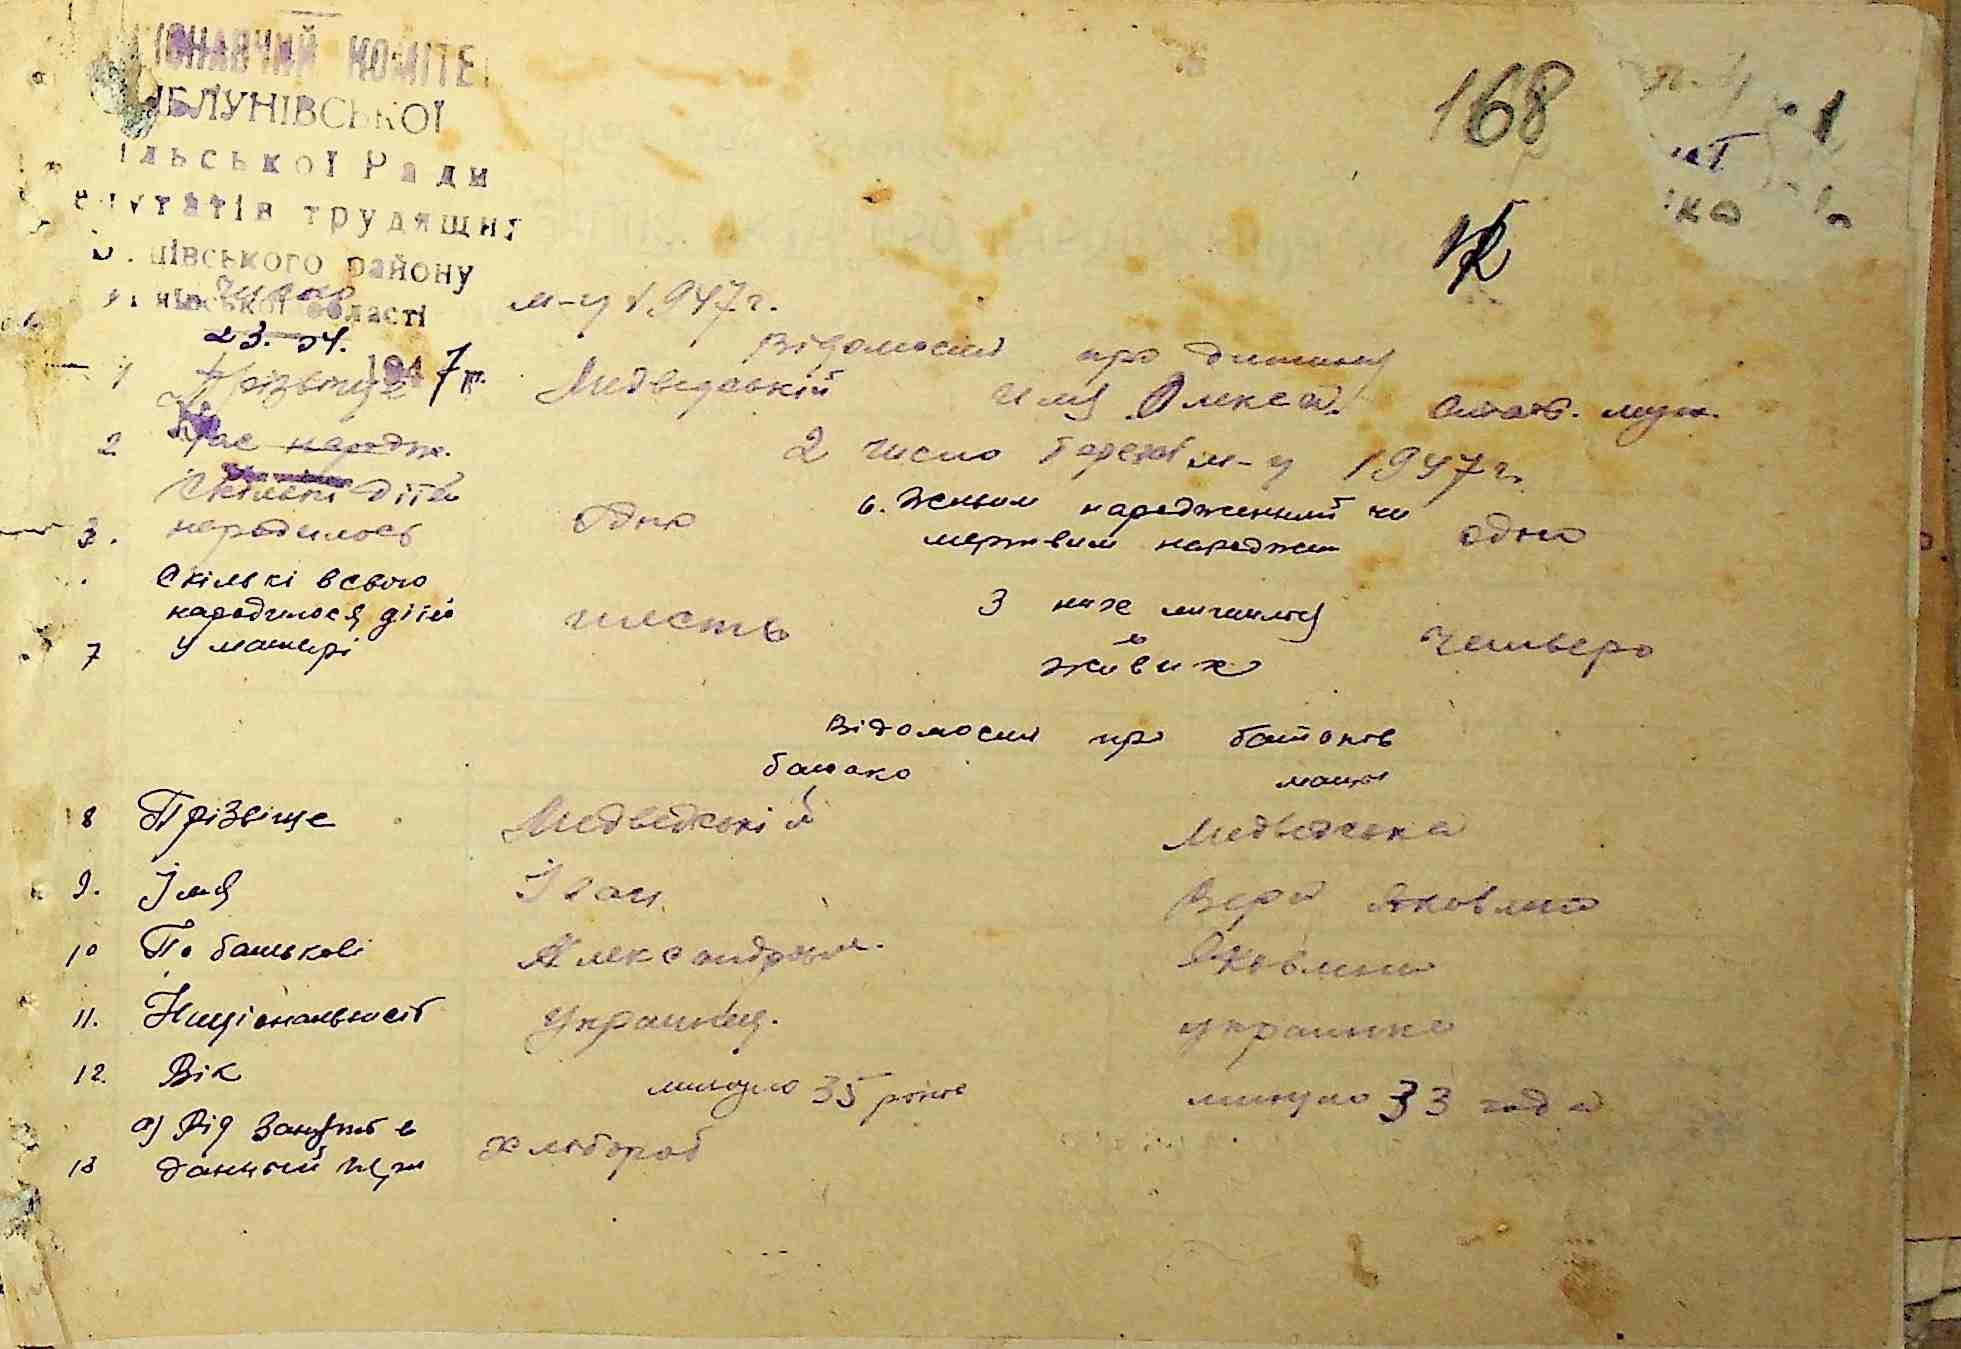 КОМІТЕ
ЯБЛУНІВСЬКОЇ
ільської Ради
епутатів трудящих
івського району
області
168
12
Число
м-ц 1947 г.
23. 04.
1947 р.
Відомості про дитину
1 Прізвище Медведський имя Олексій стать. муж.
2 Час народж. 2 число м-ц 1947 г.
Скількі дітей
3. народилось одно 6. Живим народженний чи мертвим народжен одно
Скількі всього
народилося дітей
7 у матері шесть З них лишилося в живих четверо
Відомости про батьків
батько мати
8 Прізвіще Медведський Медведська
9. Імя Іван Вера Яковлина
10 По батькові Александров. Яковлина
11. Національність Украинец. украинка
12. Вік минуло 35 років минуло 33 года
а) Рід занять в
13 данный час хлебороб